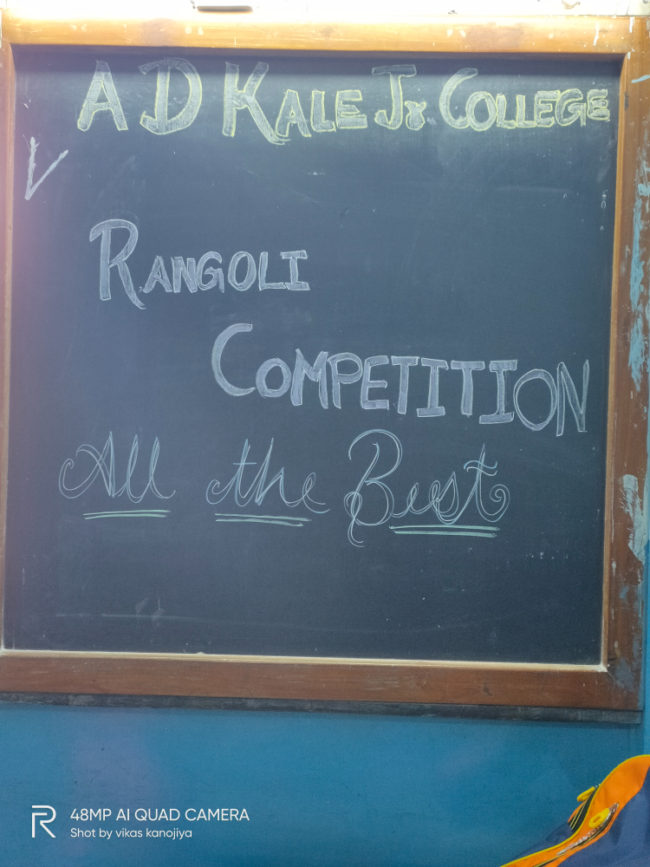 A D KALE Jr. COLLEGE
RANGOLI
COMPETITION
All the Best
R
48MP AI QUAD CAMERA
Shot by vikas kanojiya